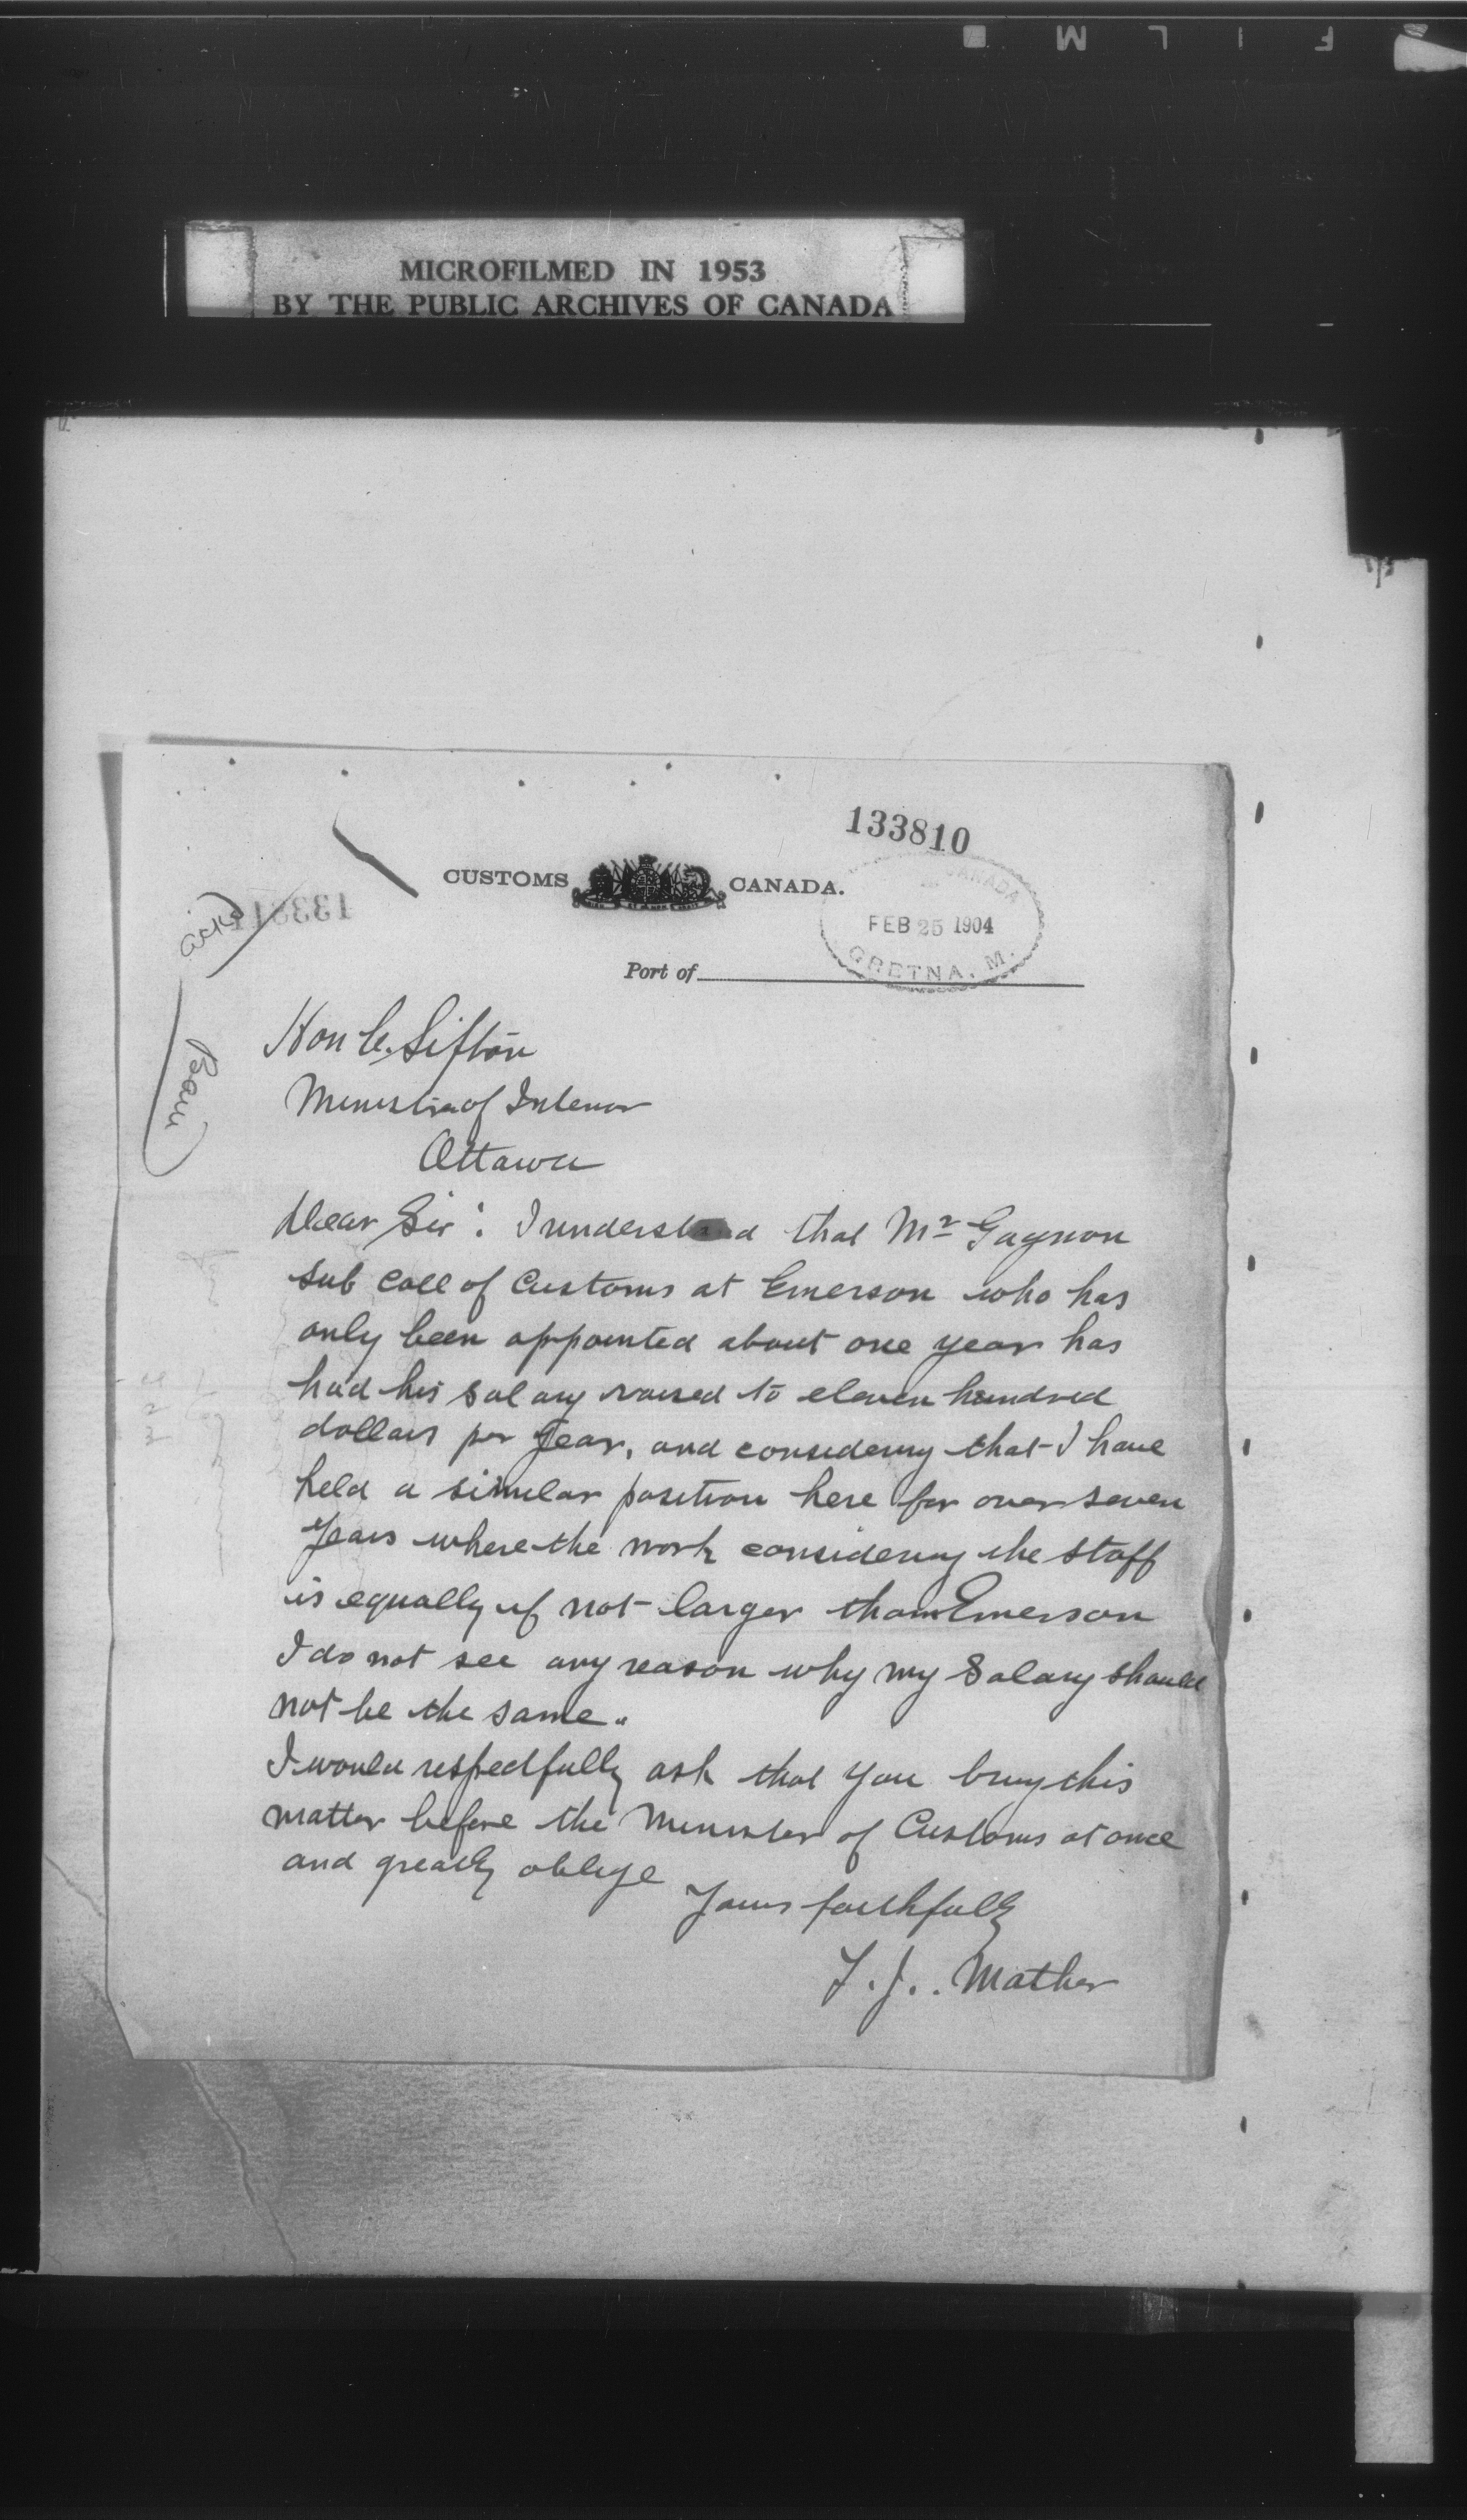 FILM
MICROFILMED IN 1953
BY THE PUBLIC ARCHIVES OF CANADA
133810
CUSTOMS CANADA.
CANADA
FEB 25 1904
GRETNA. M.
Port of
ackd
Hon C. Sifton
Minister of Interior
Ottawa
Dear Sir: I understand that Mr Gagnon
sub coll of Customs at Emerson who has
only been appointed about one year has
had his salary raised to eleven hundred
dollars per year, and considering that I have
held a similar position here for over seven
years where the work considering the staff
is equally if not larger than Emerson
I do not see any reason why my Salary should
not be the same.
I would respectfully ask that you bring this
matter before the Minister of Customs at once
and greatly oblige
Yours faithfully
F. J. Mather